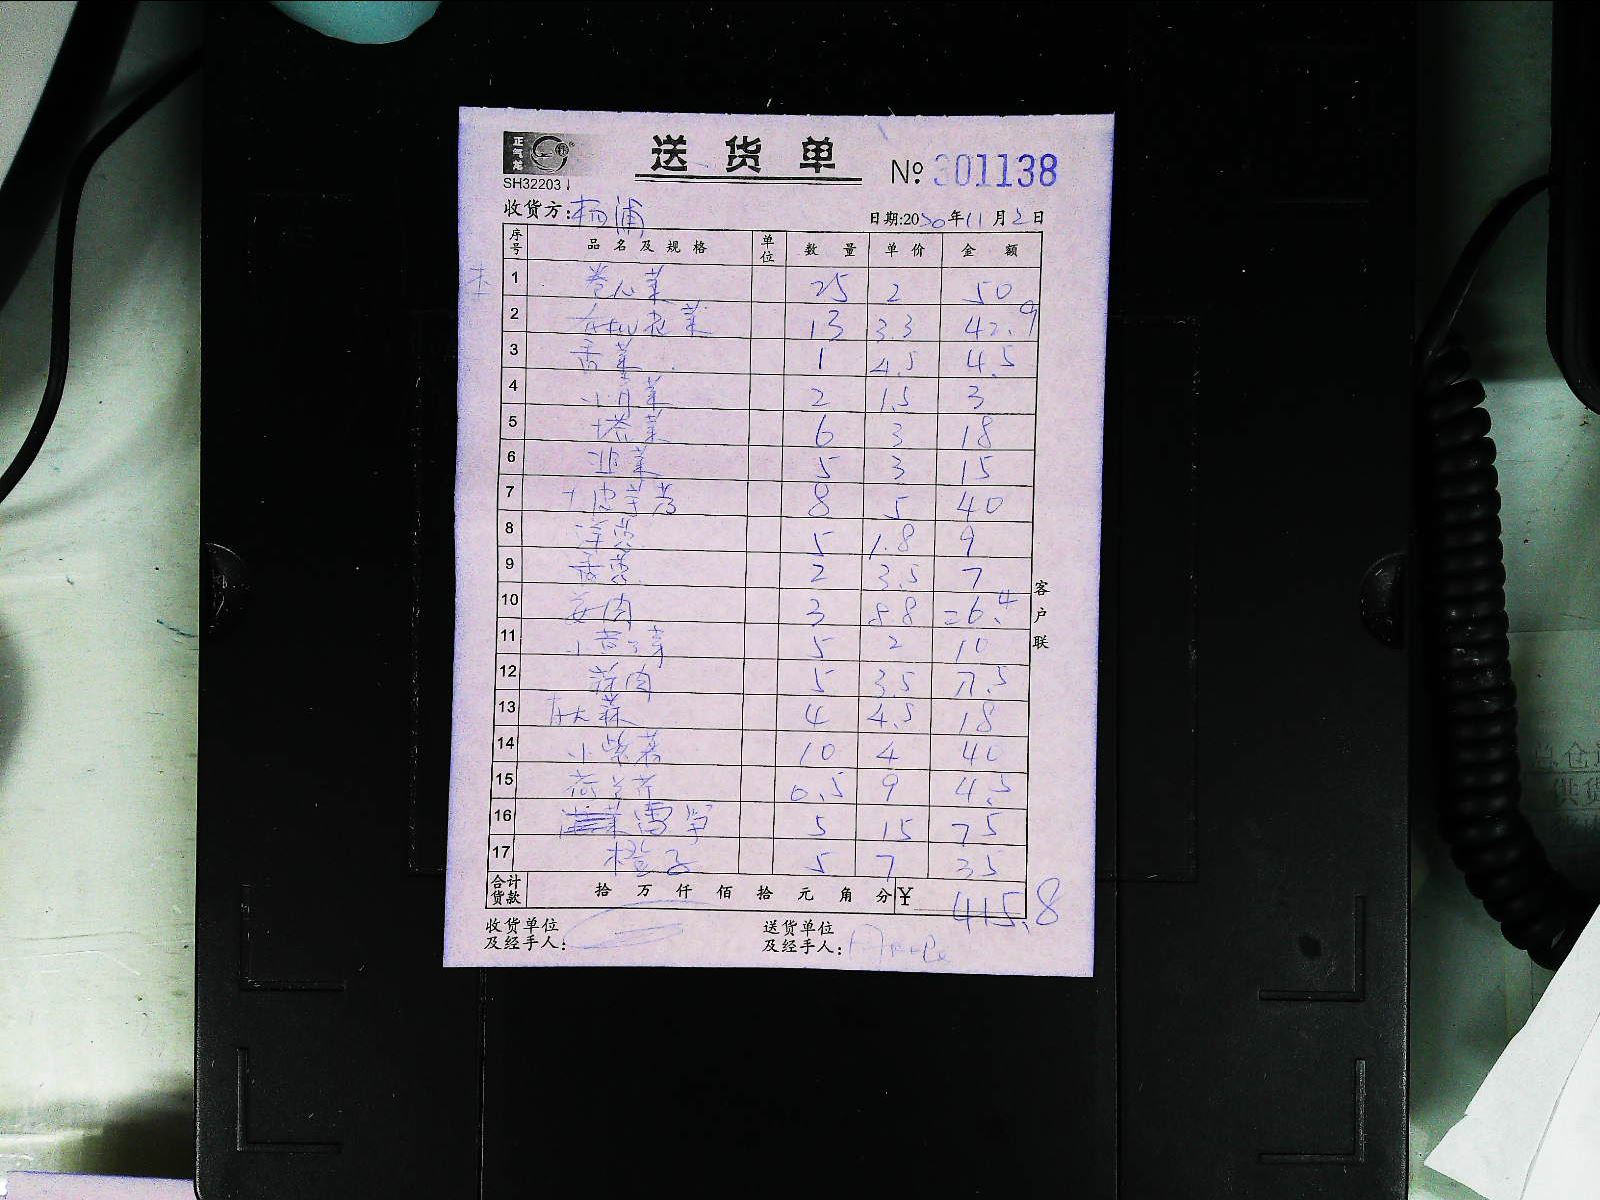 正气龙
送货单
SH32203
№ 301138
收货方:杨浦
日期:2020年11月2日
序号 品名及规格 单位 数量 单价 金额
1 卷心菜 25 2 50
2 有机花菜 13 3.3 42.9
3 香菜 1 4.5 4.5
4 小白菜 2 1.5 3
5 塔菜 6 3 18
6 韭菜 5 3 15
7 8 5 40
8 洋葱 5 1.8 9
9 香葱 2 3.5 7
10 姜肉 3 8.8 26.4
11 5 2 10
12 蒜肉 5 3.5 17.5
13 4 4.5 18
14 小紫薯 10 4 40
15 荷兰芹 0.5 9 4.5
16 雷笋 5 15 75
17 橙子 5 7 35
合计货款 拾万仟佰拾元角分 ¥ 415.8
收货单位及经手人:
送货单位及经手人:
客户联